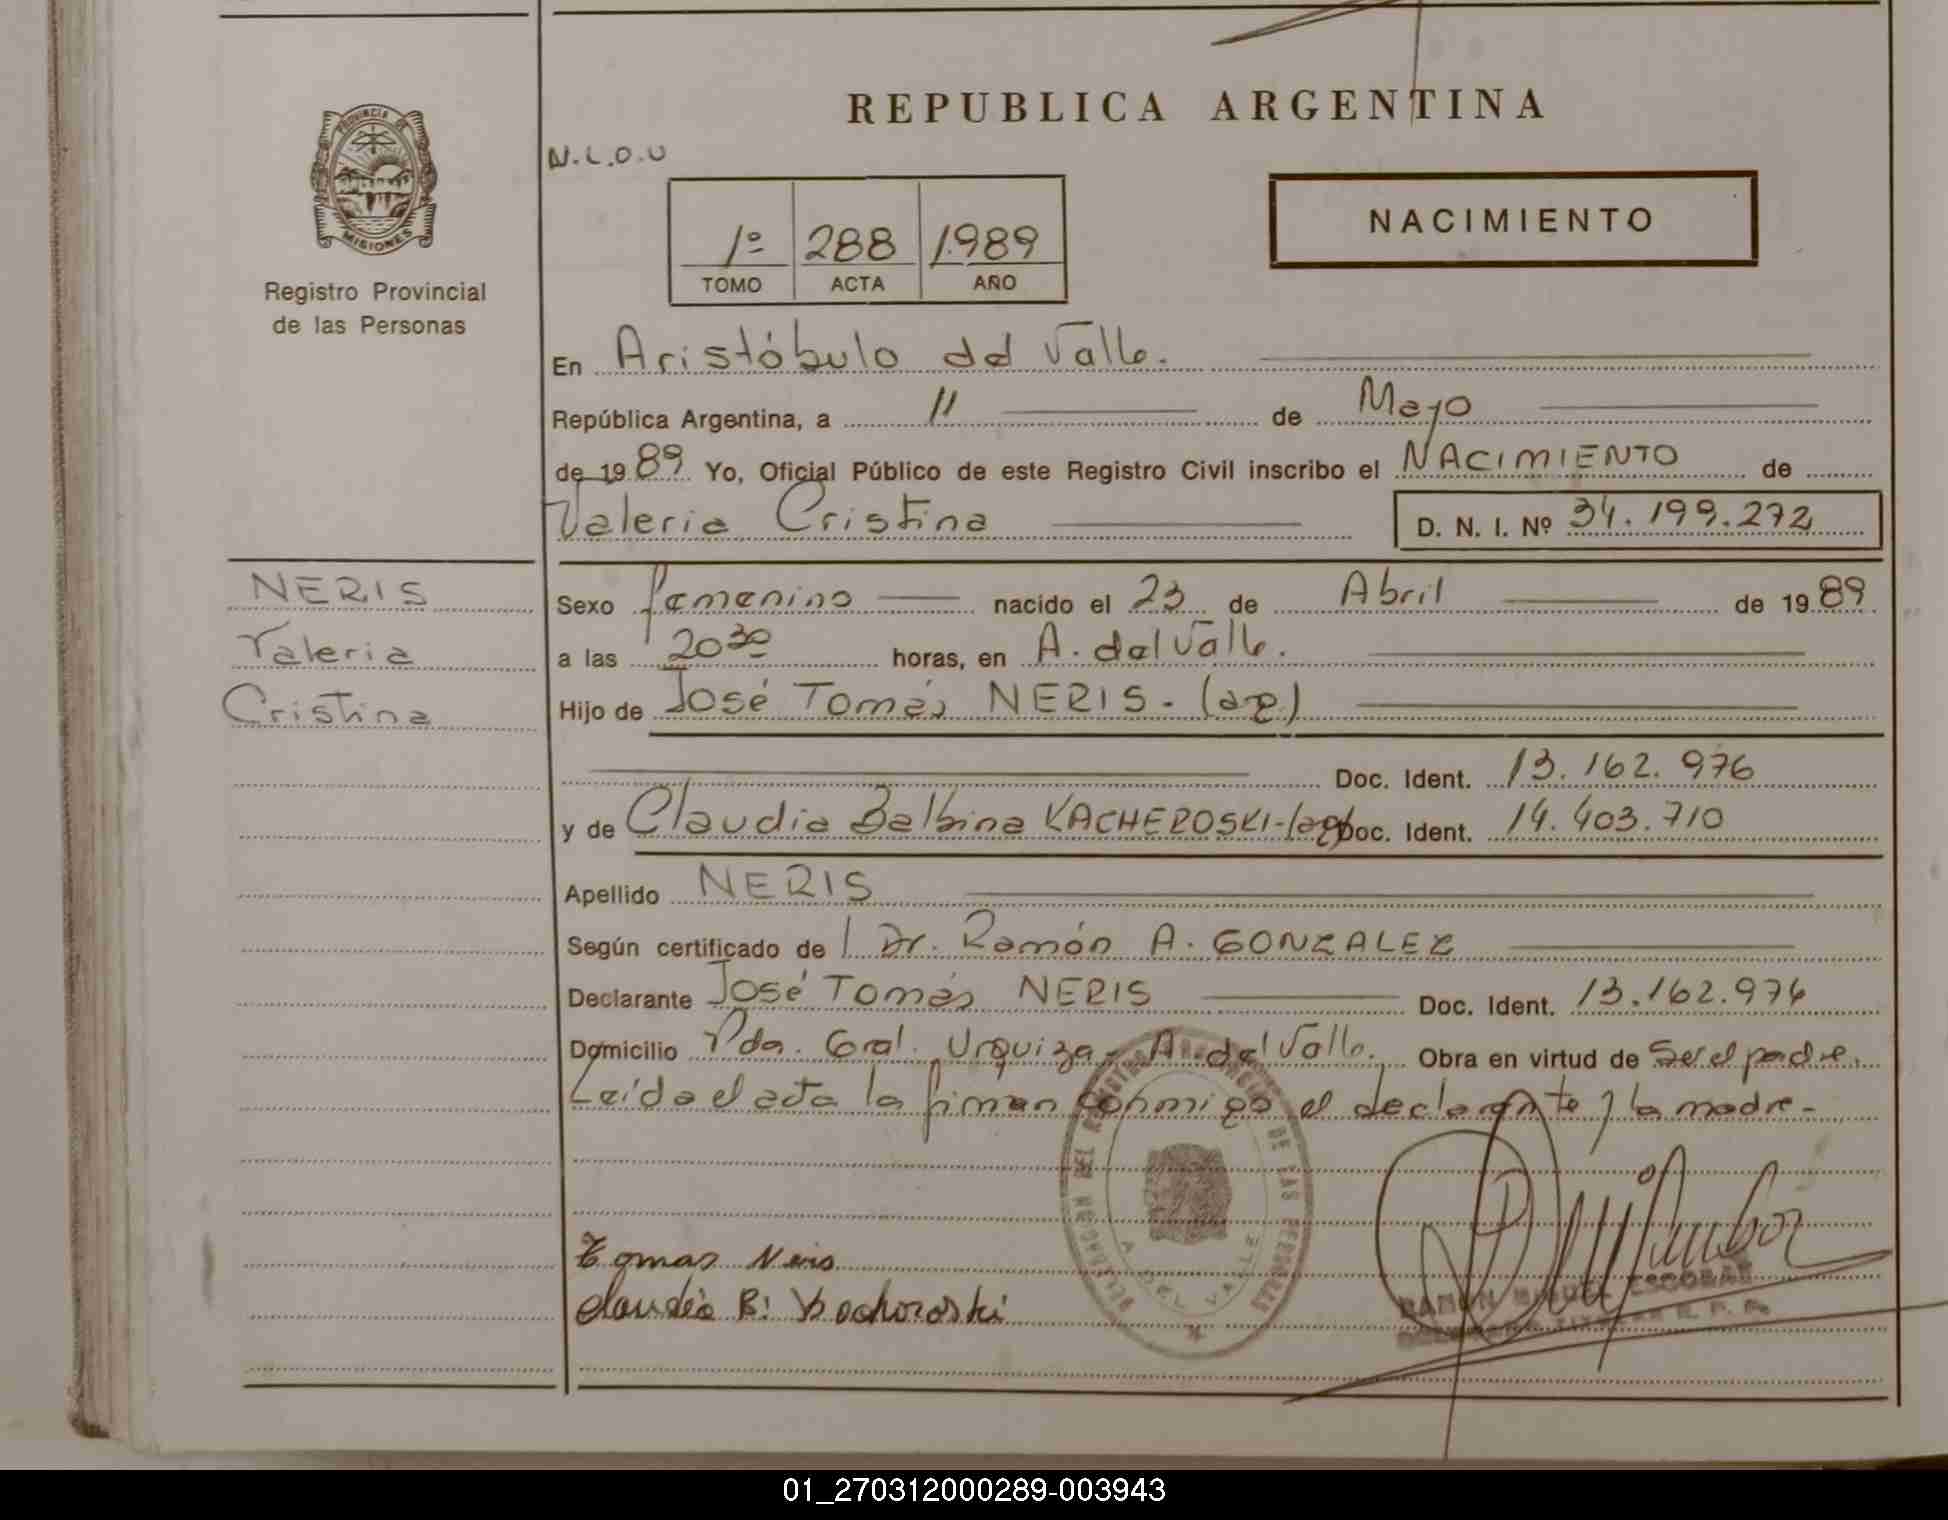 REPUBLICA ARGENTINA
N.L.O.U
PROVINCIA DE
MISIONES
Registro Provincial
de las Personas
1º 288 1.989
TOMO ACTA AÑO
NACIMIENTO
En Aristóbulo del Valle.
República Argentina, a 11 de Mayo
de 1989 Yo, Oficial Público de este Registro Civil inscribo el NACIMIENTO de
Valeria Cristina D. N. I. Nº 34.199.272
NERIS
Valeria
Cristina
Sexo femenino nacido el 23 de Abril de 1989
a las 20 30 horas, en A. del Valle.
Hijo de José Tomás NERIS. (arg.)
Doc. Ident. 13.162.976
y de Claudia Balbina KACHEROSKI-(arg) Doc. Ident. 14.403.710
Apellido NERIS
Según certificado de l Dr. Ramón A. GONZALEZ
Declarante José Tomás NERIS Doc. Ident. 13.162.976
Domicilio Pda. Gral. Urquiza, A. del Valle. Obra en virtud de Ser el padre.
Leída el acta la firman conmigo el declarante y la madre-
Tomas Neris
Claudia B. Kacheroski
DEL REGISTRO PROVINCIAL DE LAS PERSONAS
A. DEL VALLE
RAMON MIGUEL ESCOBAR
R. P. P.
01_270312000289-003943